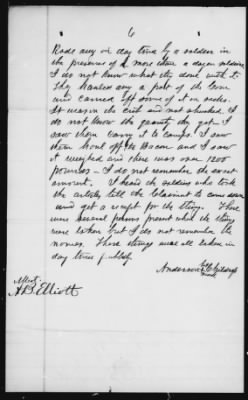 6
Rode any in day time by a soldier in
the presence of more than a dozen soldiers
I do not know what they done with it
They hauled any a part of the Corn
and carried off some of it in sacks.
It was in the crib and not shucked. I
do not know the quantity they got - I
saw them carry it to camps. I saw
them haul off the Bacon and I saw
it weighed and there was over 1200
pounds - I do not remember the exact
amount. I heard the soldiers who took
the articles tell the Claimant to come down
and get a receipt for the things. There
were several persons present when the things
were taken but I do not remember the
names. These things were all taken in
day time publicly.
Anderson his
mark
Attest;
A B Elliott